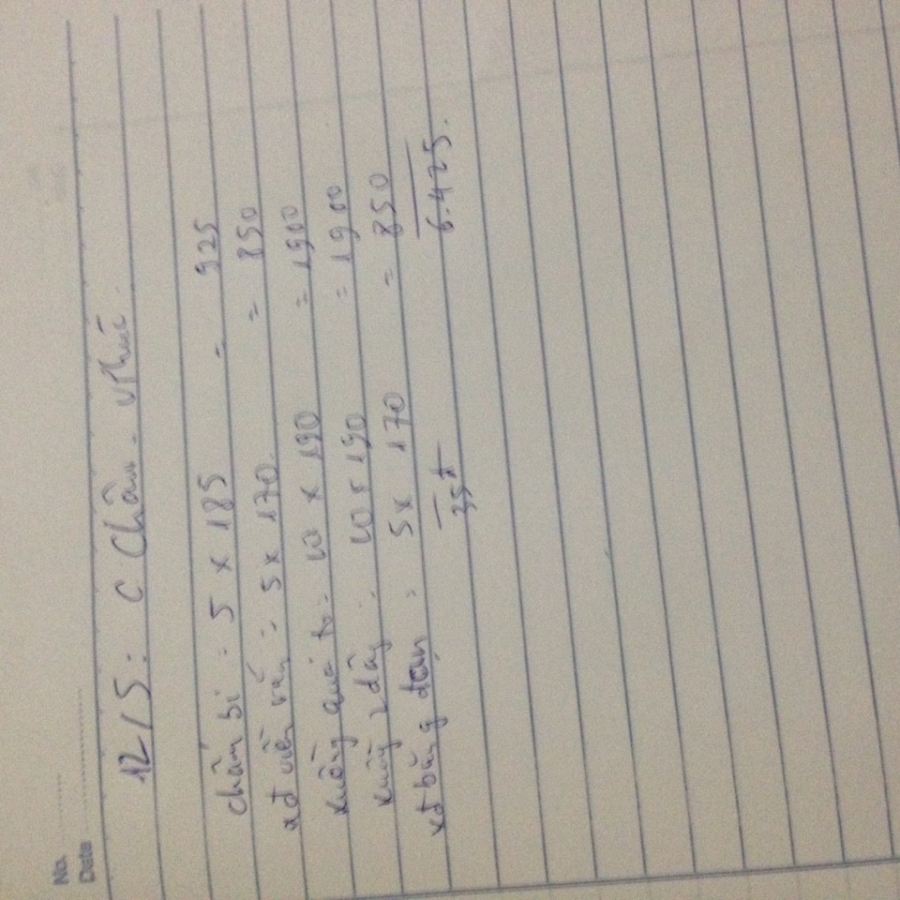 No.
Date
12/5: C Chấm - vthuê.
chấm bi = 5 x 185 = 925
xđ viền = 5 x 170 = 850
xuồng quai to = 10 x 190 = 1900
xuồng 2 dây : 10 x 190 = 1900
xđ băng đạn = 5 x 170 = 850
35 6.425.